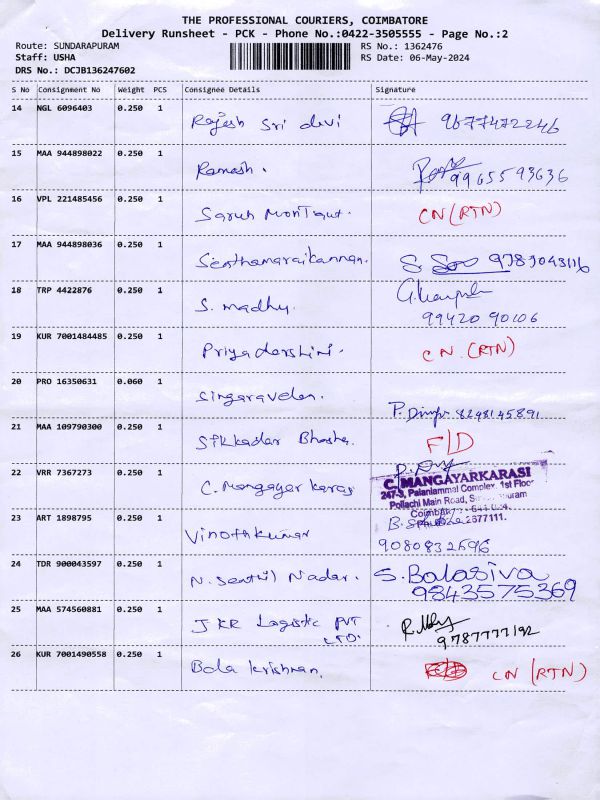 THE PROFESSIONAL COURIERS, COIMBATORE
Delivery Runsheet - PCK - Phone No.:0422-3505555 - Page No.:2
Route: SUNDARAPURAM RS No.: 1362476
Staff: USHA RS Date: 06-May-2024
DRS No.: DCJB136247602
S No Consignment No Weight PCS Consignee Details Signature
14 NGL 6096403 0.250 1
Rajesh Sri devi 9677472246
15 MAA 944898022 0.250 1
Ramesh. 9965593636
16 VPL 221485456 0.250 1
CN (RTN)
17 MAA 944898036 0.250 1
Senthamaraikannan.
18 TRP 4422876 0.250 1
S. madhu.
99420 90106
19 KUR 7001484485 0.250 1
Priyadarshini. CN (RTN)
20 PRO 16350631 0.060 1
Singaravelan. 8248145891
21 MAA 109790300 0.250 1
Sikkadar Bhasha. F/D
22 VRR 7367273 0.250 1
C. Mangayar karasi
C. MANGAYARKARASI
247-3, Palaniammal Complex, 1st Floor
Pollachi Main Road,
23 ART 1898795 0.250 1
Vinothkumar
9080832696
24 TDR 900043597 0.250 1
N. Senthil Nadar. S. Balasiva
9843575369
25 MAA 574560881 0.250 1
JKR Logistic PVT
LTD.
9787777192
26 KUR 7001490558 0.250 1
Bala krishnan. CN (RTN)